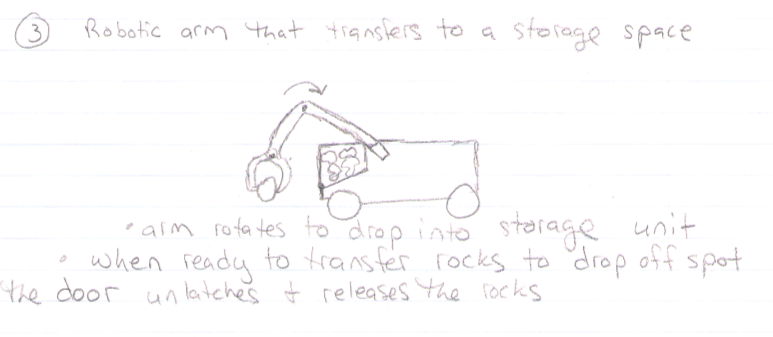 ③ Robotic arm that transfers to a storage space
• arm rotates to drop into storage unit
• when ready to transfer rocks to drop off spot
the door unlatches + releases the rocks